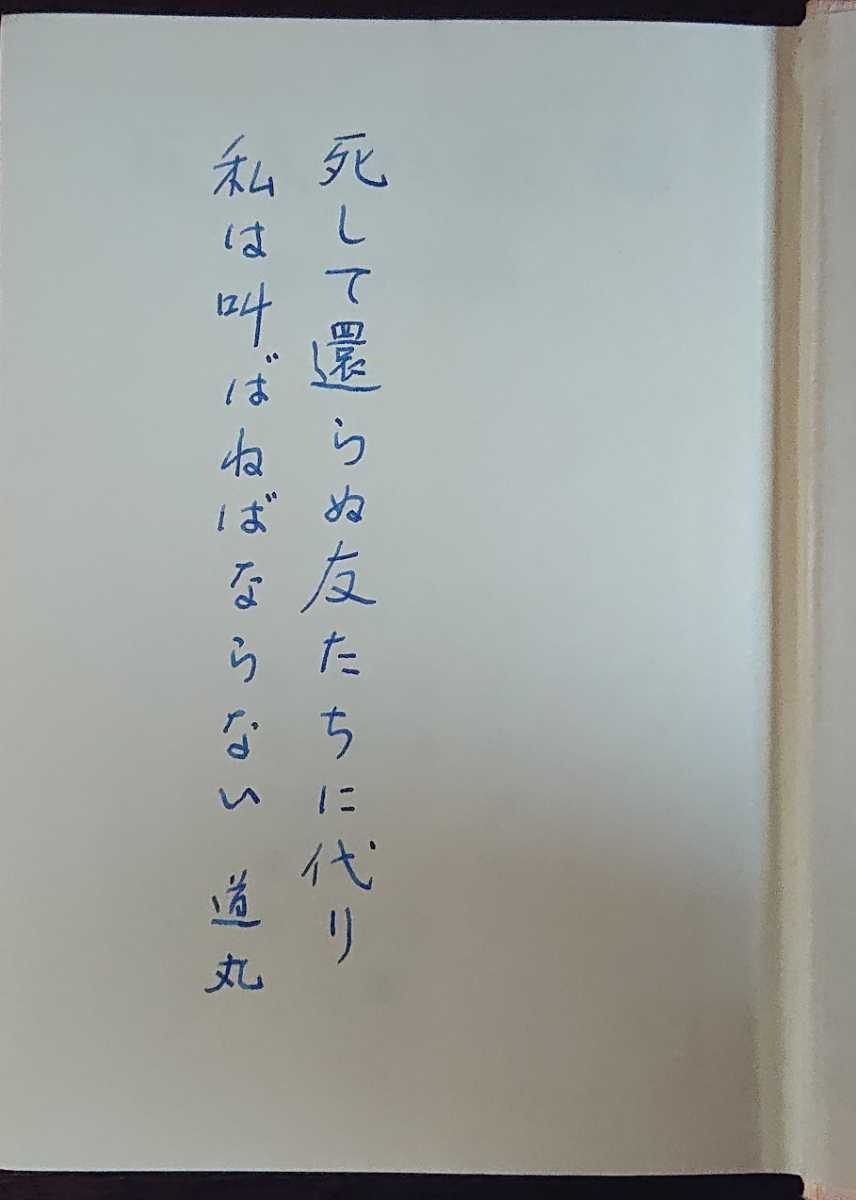 死して還らぬ友たちに代り
私は叫ばねばならない 道丸